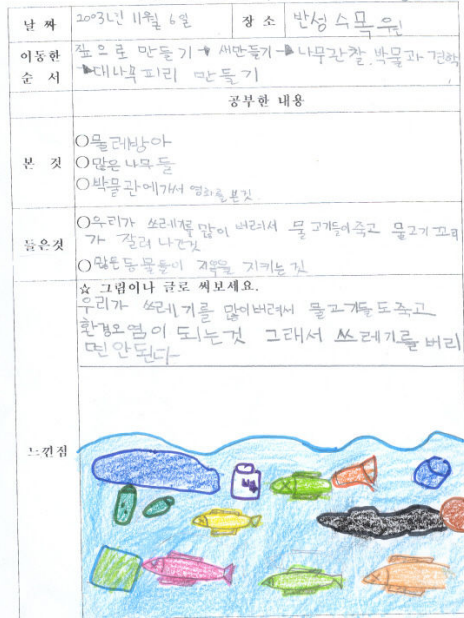 날 짜 2003년 11월 6일 장 소 반성 수목원
이동한 짚으로 만들기 → 새만들기 → 나무관찰, 박물관 견학
순 서 → 대나무피리 만들기
공부한 내용
본 것
○물레방아
○많은 나무들
○박물관에가서 영화를 본것
들은것
○우리가 쓰레기를 많이 버려서 물고기들이죽고 물고기 꼬리
가 잘려 나간것
○많은동물들이 지구을 지키는것
느낀점
☆ 그림이나 글로 써보세요.
우리가 쓰레기를 많이버려서 물고기들도죽고
환경오염이 되는것 그래서 쓰레기를 버리
면안된다